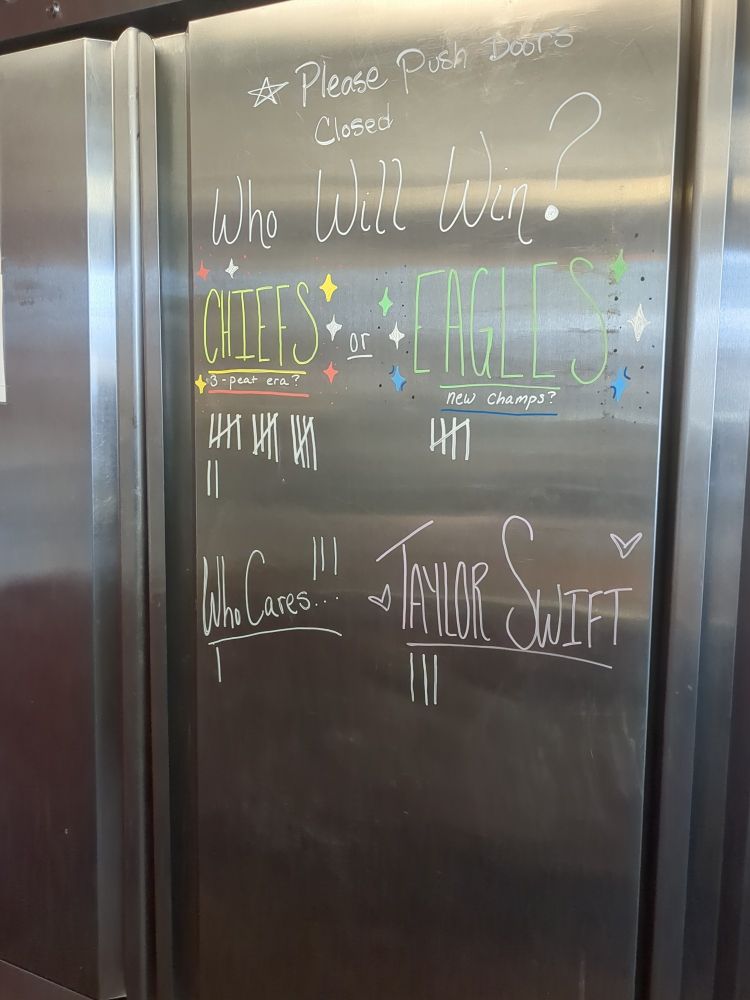 ☆ Please Push Doors
Closed
Who Will Win?
CHIEFS or EAGLES
3-peat era?
new champs?
Who Cares...
TAYLOR SWIFT